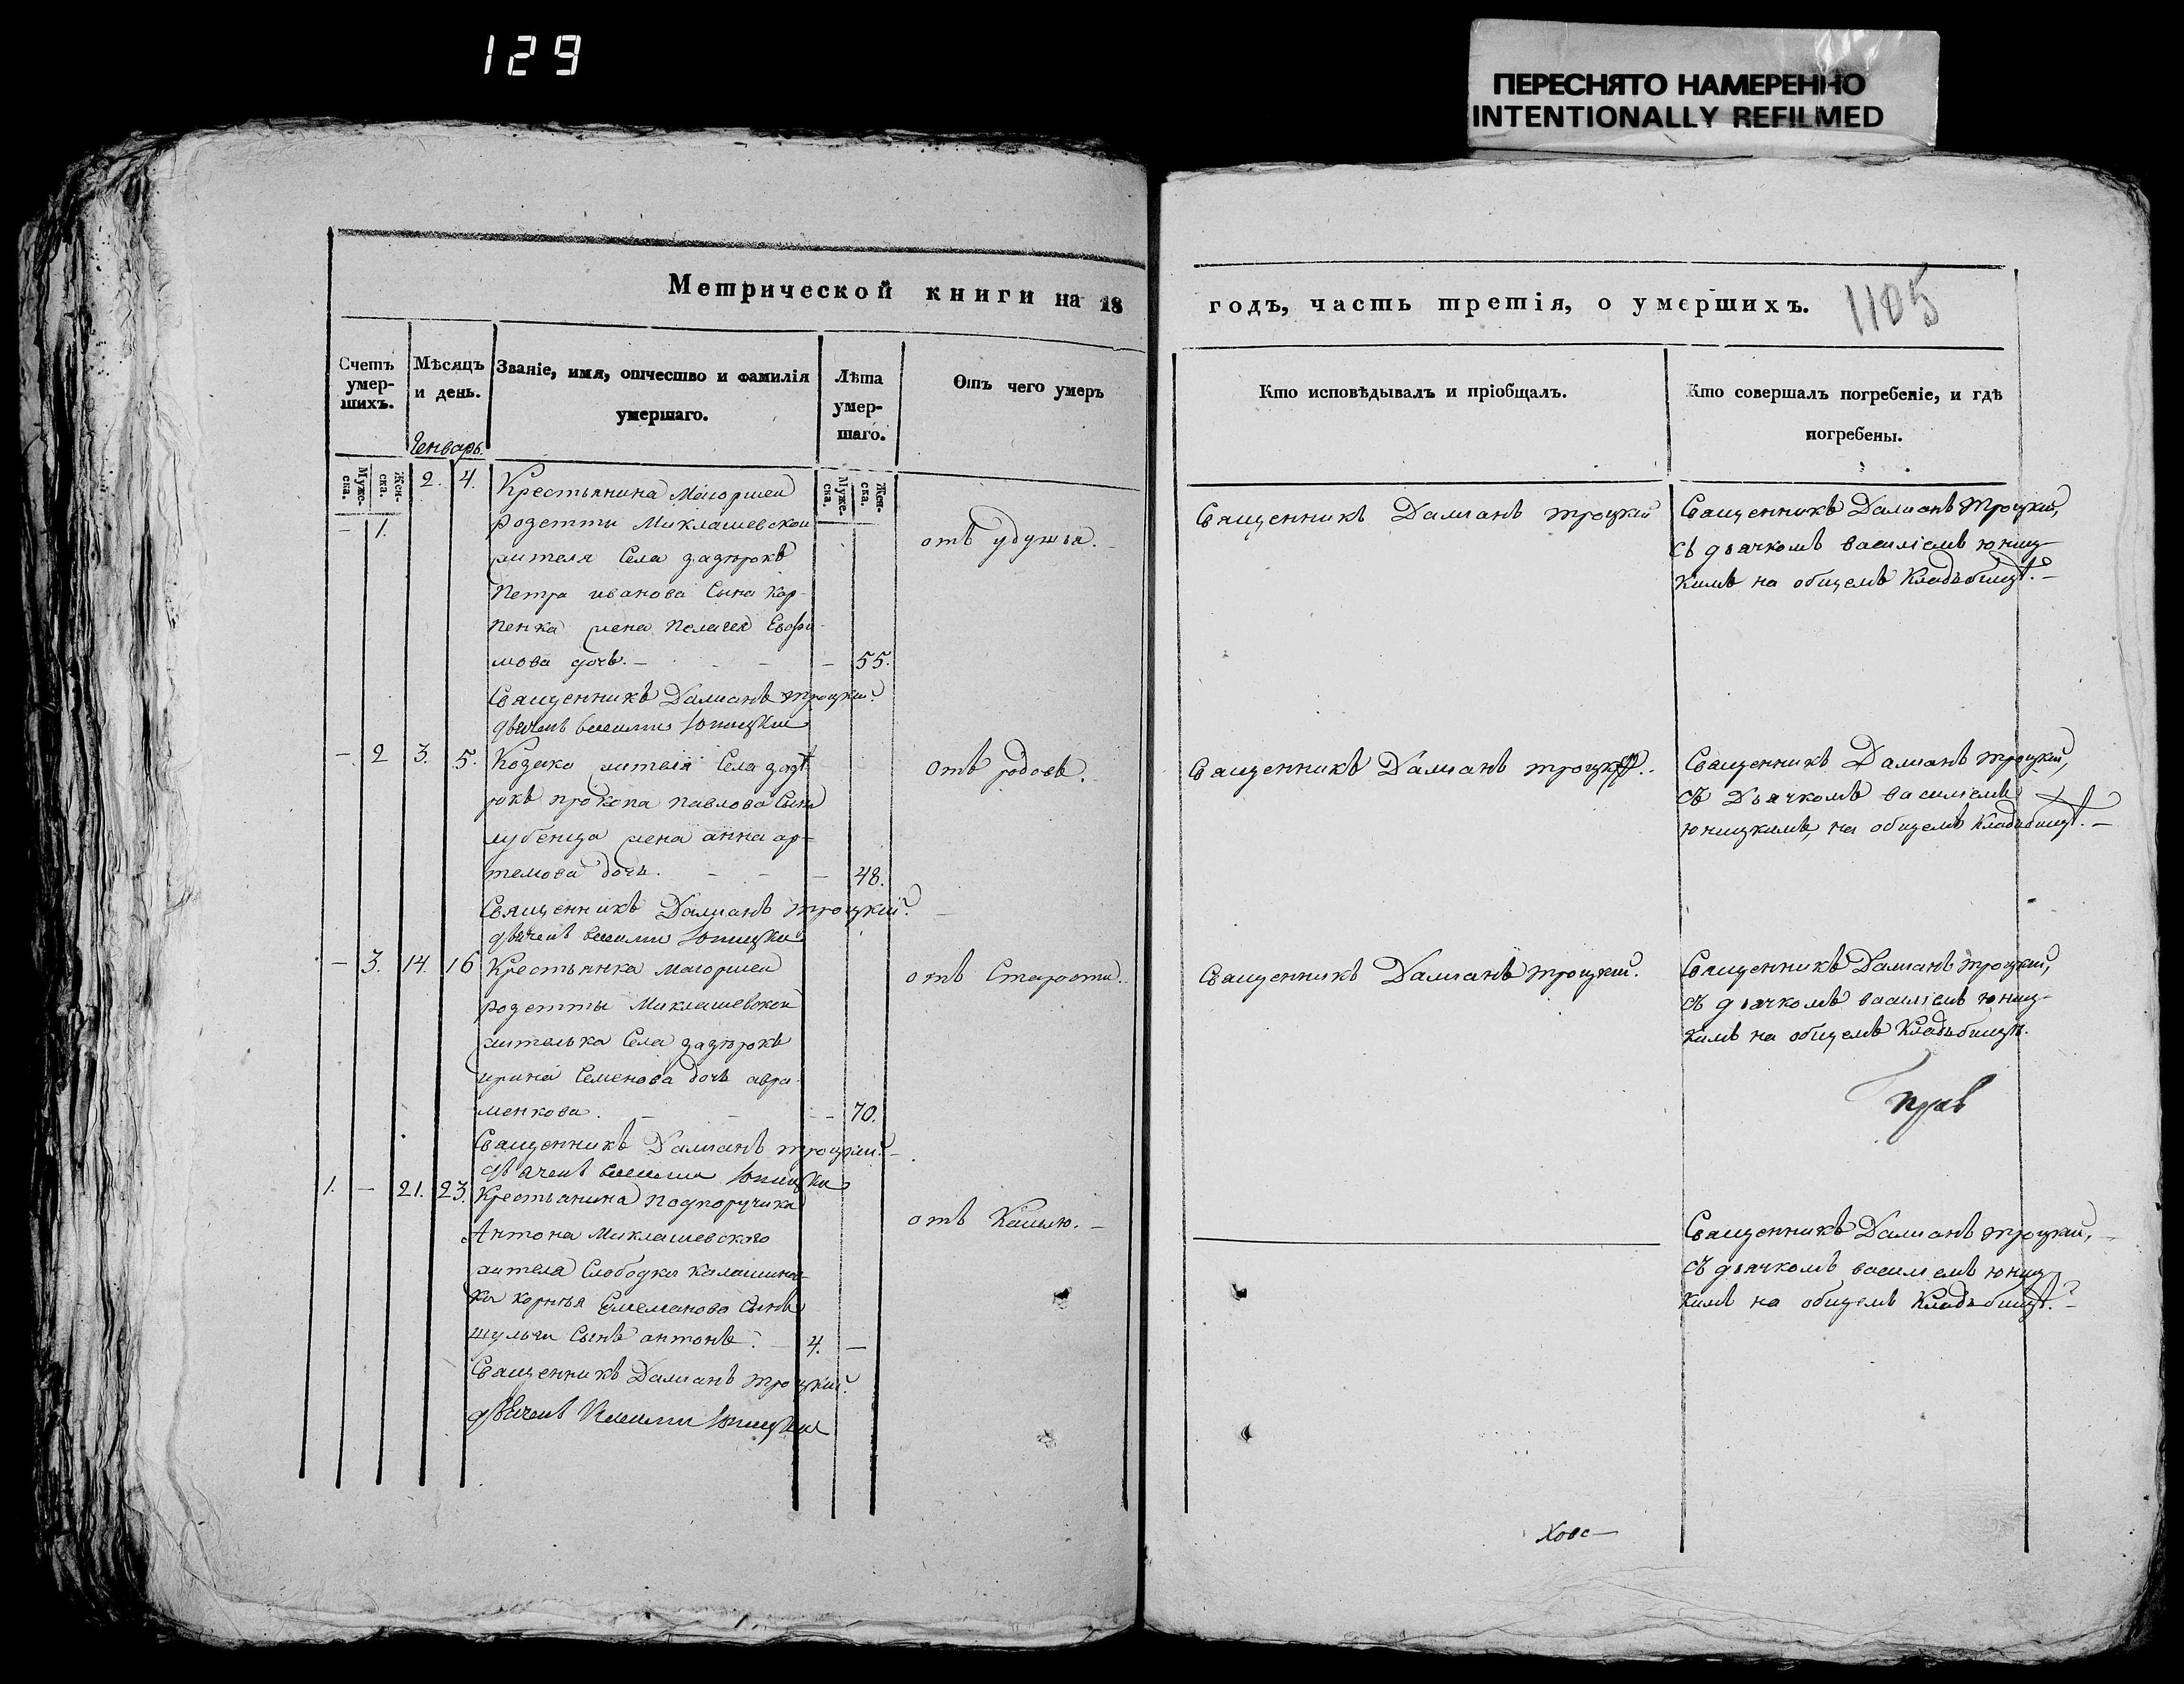 129
ПЕРЕСНЯТО НАМЕРЕННО
INTENTIONALLY REFILMED
Метрической книги на 18
годъ, часть третія, о умершихъ.
1105
Счетъ умер-шихъ.
Мѣсяцъ и день.
Званіе, имя, отчество и фамилія умершаго.
Лѣта умер-шаго.
Отъ чего умеръ
Кто исповѣдывалъ и пріобщалъ.
Кто совершалъ погребеніе, и гдѣ погребены.
Генварь.
Мужс-ска.
Жен-ска.
Мужс-ска.
Жен-ска.
— 1. 2. 4.
Крестьянина Маіоршеи
Розетты Миклашевской
жителя Села задѣрокъ
Петра иванова Сына Кар-
пенка жена Пелагея Евфи-
мова дочь. — 55.
Священникъ Даміанъ Троцкий.
дьячекъ Василий Юницкий
отъ удушья.
Священникъ Даміанъ Троцкий
Священникъ Даміанъ Троцкий,
съ дьячкомъ василіемъ юниц-
кимъ на общемъ Кладъбищѣ. —
— 2 3. 5.
Козака жителя Села задѣ-
рокъ прокопа павлова Сына
лубенца жена анна ар-
темова дочь. — 48.
Священникъ Даміанъ троцкий.
дьячекъ Василий Юницкий
отъ родовъ.
Священникъ Даміанъ троцкий.
Священникъ Даміанъ троцкий,
съ Дьячкомъ василіемъ
юницкимъ, на общемъ Кладъбищѣ. —
— 3. 14. 16
Крестьянка маіоршеи
розетты Миклашевской
жителька Села задѣрокъ
ирина Семенова дочь авра-
менкова. — 70.
Священникъ Даміанъ троцкий. —
дьячекъ Василий Юницкий
отъ Старости.
Священникъ Даміанъ троцкий.
Священникъ Даміанъ троцкий,
съ дьячкомъ василіемъ юниц-
кимъ на общемъ Кладъбищѣ.
1. — 21. 23.
Крестьянина Подпоручика
Антона Миклашевского
жителя Слободки Калашинов-
ки корнѣя Сына
шульги Сынъ антонъ. 4. —
Священникъ Даміанъ троцкий.
дьячекъ Василий Юницкий
отъ Кашлю. —
Священникъ Даміанъ троцкий,
съ дьячкомъ василіемъ юниц-
кимъ на общемъ Кладъбищѣ. —